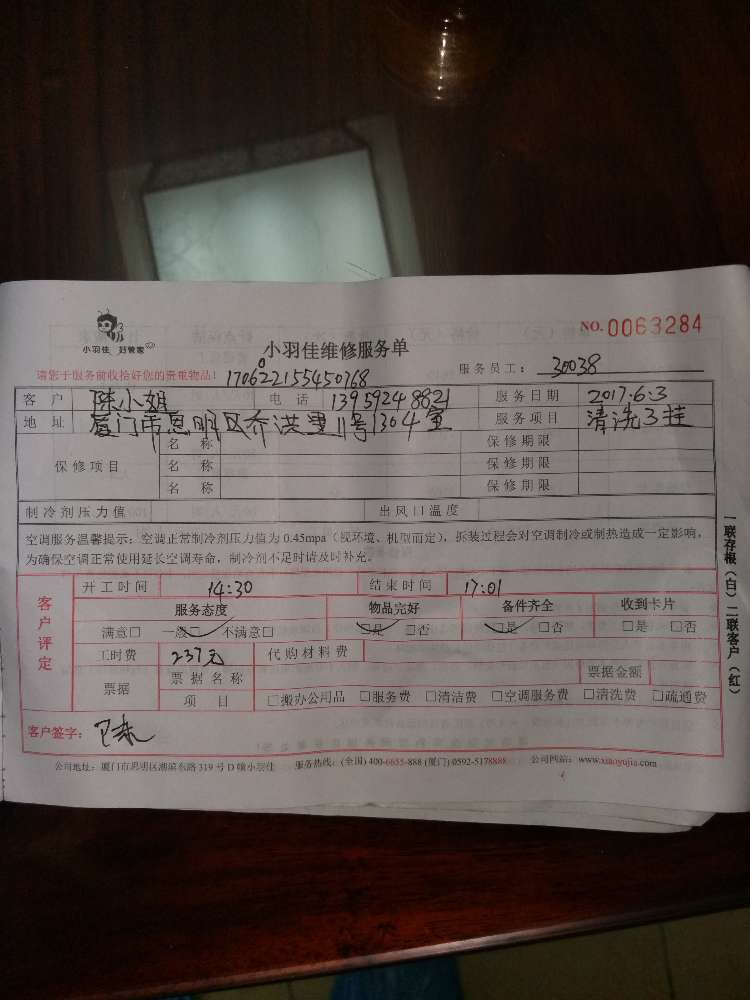 小羽佳 好管家
NO. 0063284
小羽佳维修服务单
请您于服务前收拾好您的贵重物品！ 1706022155450768 服务员工： 30038
客 户 陈小姐 电 话 13959248821 服务日期 2017.6.3
地 址 厦门市思明区乔洪里11号1304室 服务项目 清洗3挂
保修项目 名 称 保修期限
名 称 保修期限
名 称 保修期限
制冷剂压力值 出风口温度
空调服务温馨提示：空调正常制冷剂压力值为 0.45mpa（视环境、机型而定），拆装过程会对空调制冷或制热造成一定影响，
为确保空调正常使用延长空调寿命，制冷剂不足时请及时补充。
客户评定
开工时间 14:30 结束时间 17:01
服务态度 物品完好 备件齐全 收到卡片
满意□ 一般□ 不满意□ □是 □否 □是 □否 □是 □否
工时费 237元 代购材料费
票据 票据名称 票据金额
项 目 □搬办公用品 □服务费 □清洁费 □空调服务费 □清洗费 □疏通费
客户签字： 陈
公司地址：厦门市思明区湖滨东路 319 号 D 幢小羽佳 服务热线：(全国) 400-6655-888 (厦门) 0592-5178888 公司网站：www.xiaoyujia.com
一联存根（白）二联客户（红）